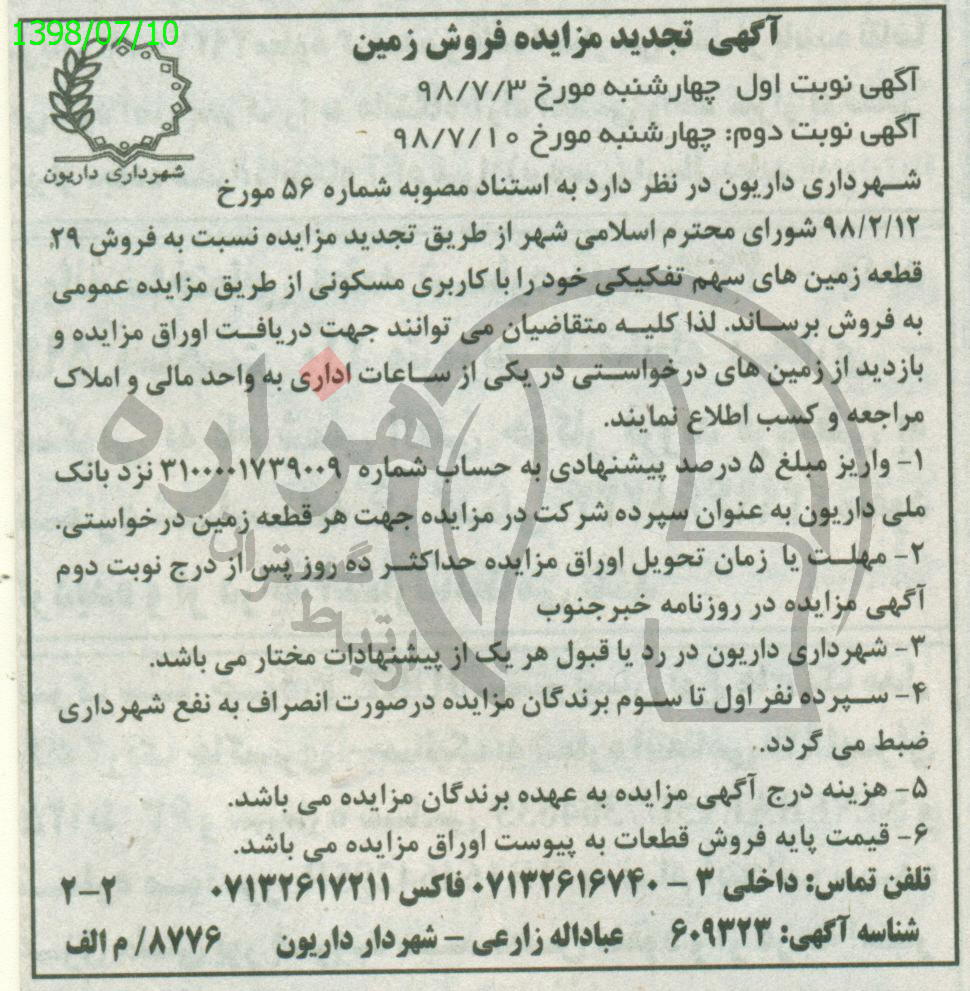 1398/07/10
آگهی تجدید مزایده فروش زمین
آگهی نوبت اول چهارشنبه مورخ ۹۸/۷/۳
آگهی نوبت دوم: چهارشنبه مورخ ۹۸/۷/۱۰
شهرداری داریون
شـهرداری داریون در نظر دارد به استناد مصوبه شماره ۵۶ مورخ
۹۸/۲/۱۲ شورای محترم اسلامی شهر از طریق تجدید مزایده نسبت به فروش ۲۹
قطعه زمین های سهم تفکیکی خود را با کاربری مسکونی از طریق مزایده عمومی
به فروش برسـاند. لذا کلیـه متقاضیان می توانند جهت دریافـت اوراق مزایده و
بازدید از زمین های درخواسـتی در یکی از سـاعات اداری به واحد مالی و املاک
مراجعه و کسب اطلاع نمایند.
۱- واریز مبلغ ۵ درصد پیشنهادی به حساب شماره ۳۱۰۰۰۰۱۷۳۹۰۰۹ نزد بانک
ملی داریون به عنوان سپرده شرکت در مزایده جهت هر قطعه زمین درخواستی.
۲- مهلـت یا زمان تحویل اوراق مزایده حداکثـر ده روز پس از درج نوبت دوم
آگهی مزایده در روزنامه خبرجنوب
۳- شهرداری داریون در رد یا قبول هر یک از پیشنهادات مختار می باشد.
۴- سـپرده نفر اول تا سـوم برندگان مزایده درصورت انصراف به نفع شهرداری
ضبط می گردد.
۵- هزینه درج آگهی مزایده به عهده برندگان مزایده می باشد.
۶- قیمت پایه فروش قطعات به پیوست اوراق مزایده می باشد.
تلفن تماس: داخلی ۳ - ۰۷۱۳۲۶۱۶۷۴۰ فاکس ۰۷۱۳۲۶۱۷۲۱۱ ۲-۲
شناسه آگهی: ۶۰۹۳۲۳ عباداله زارعی - شهردار داریون ۸۷۷۶/ م الف
هزاره
ارتباط
گستران